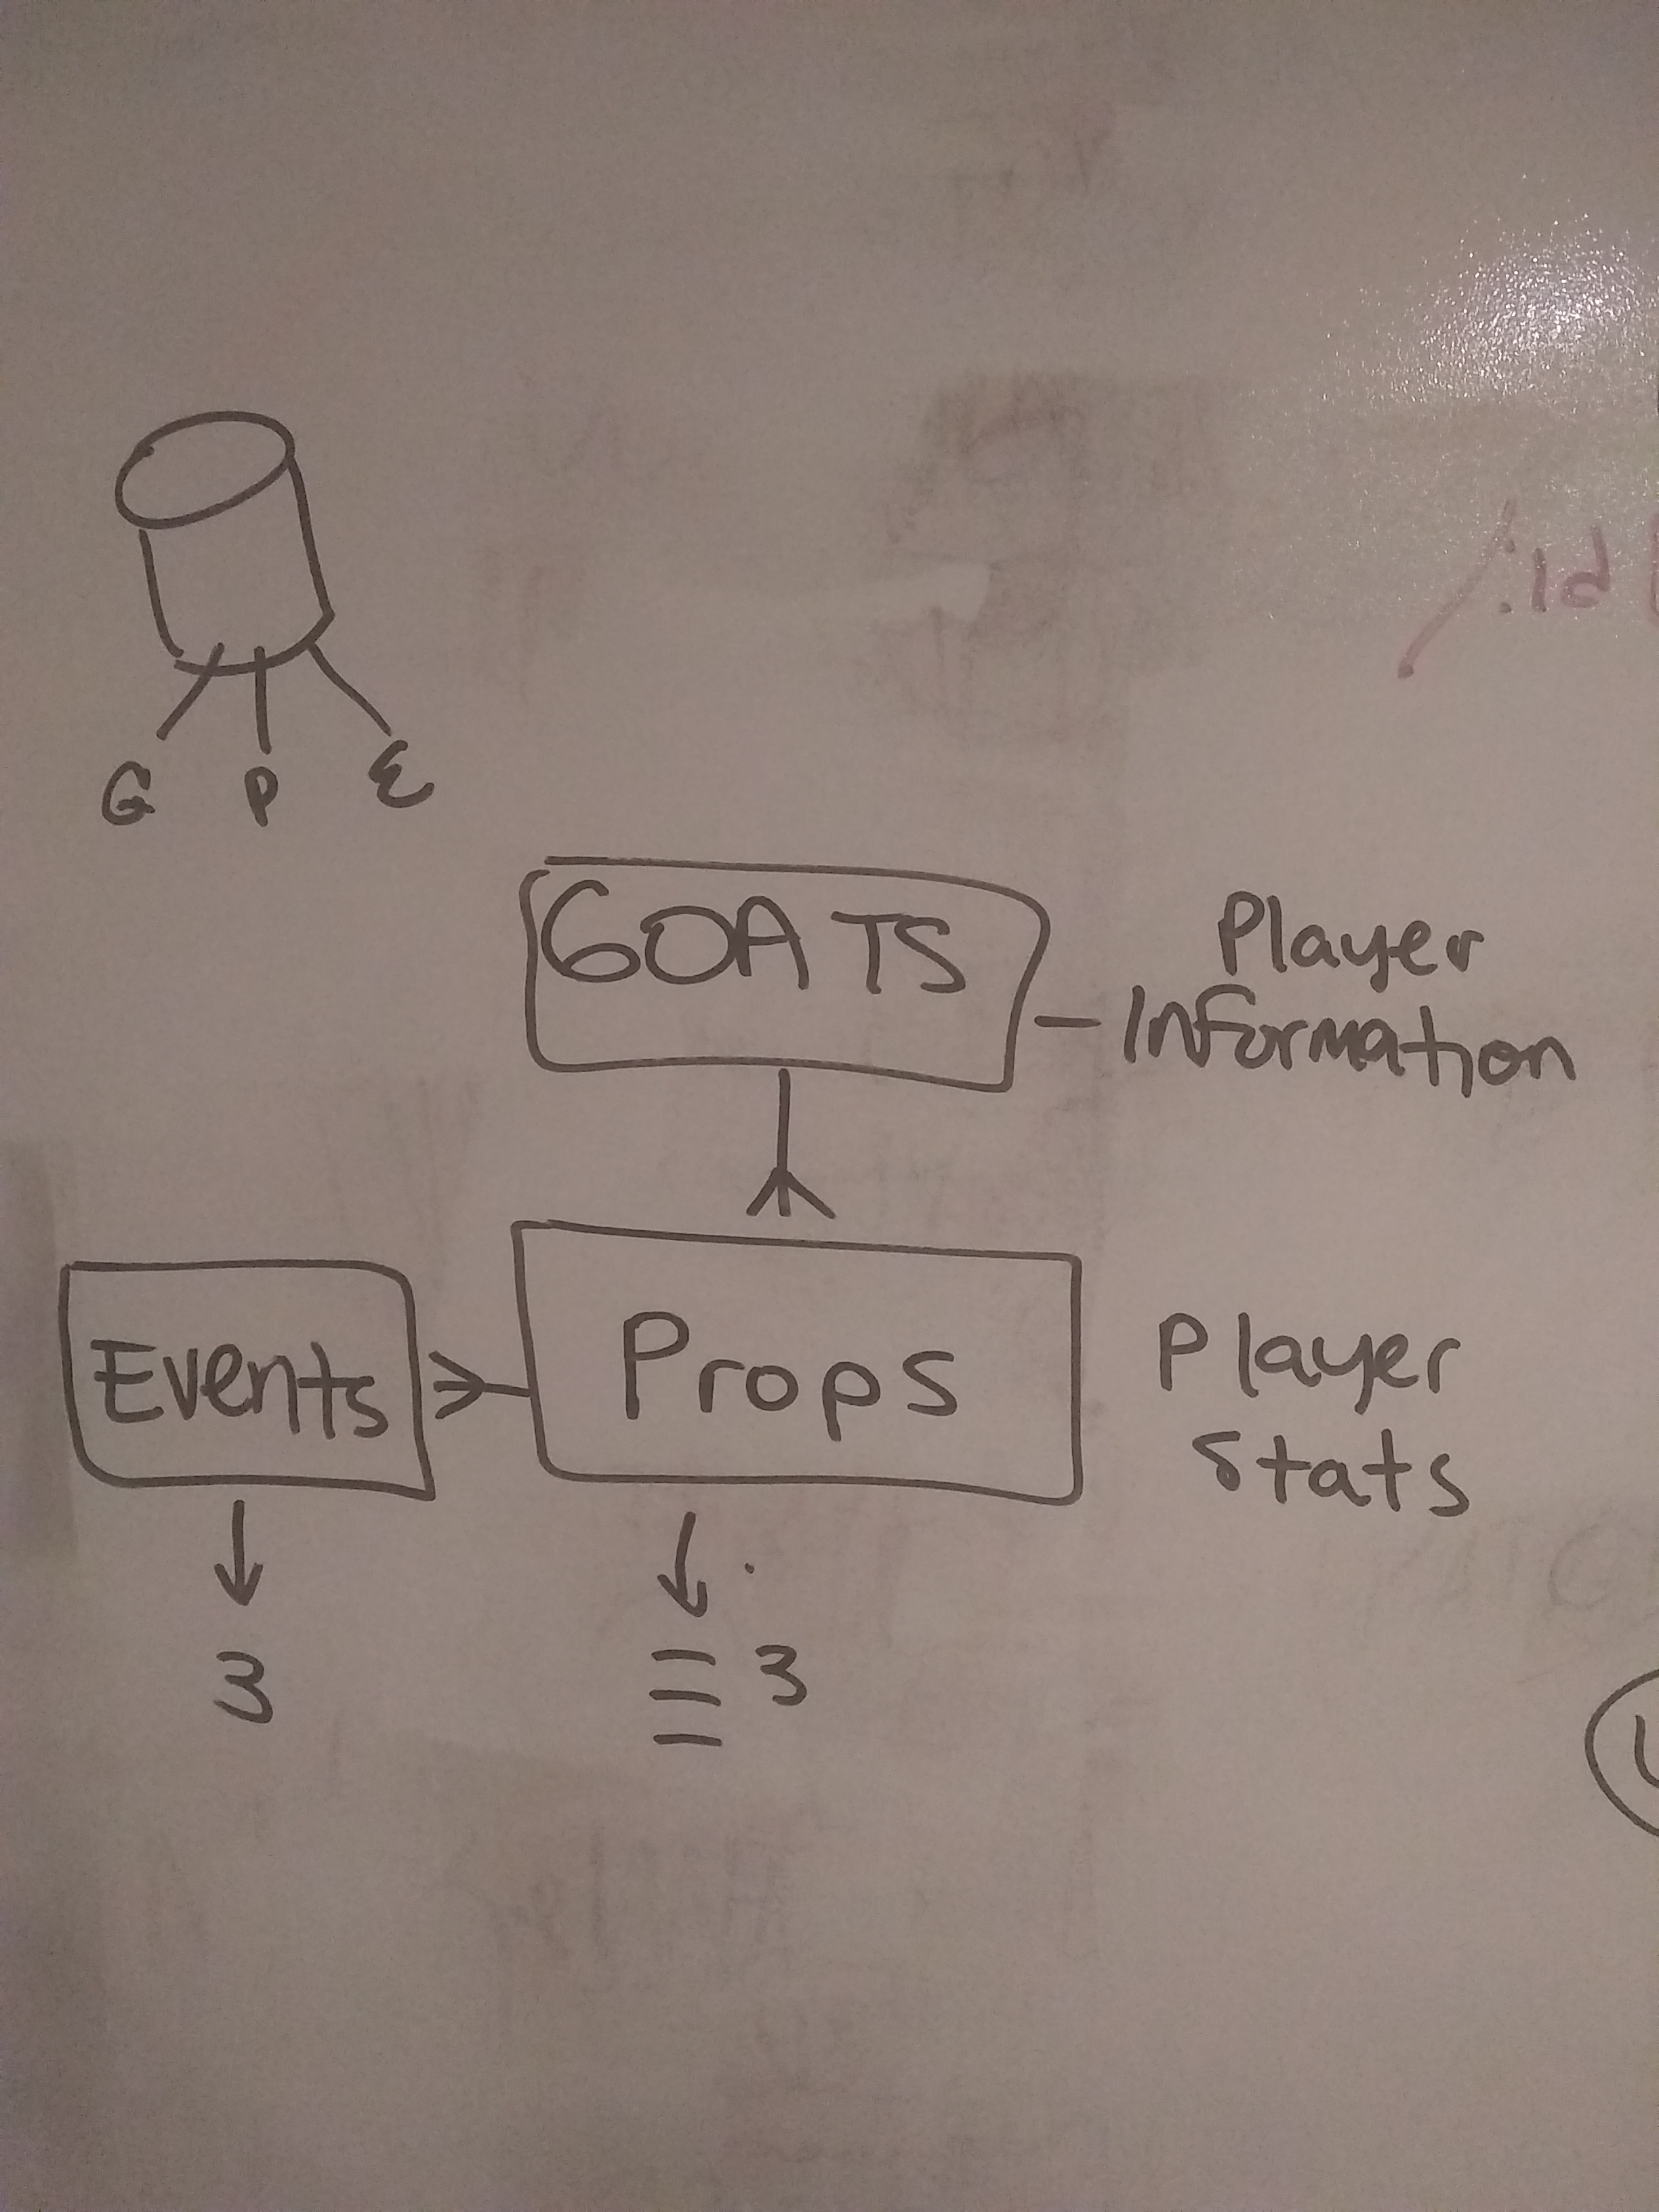 G P E
GOATS
Player
Information
Events
Props
Player
Stats
3
3
:id